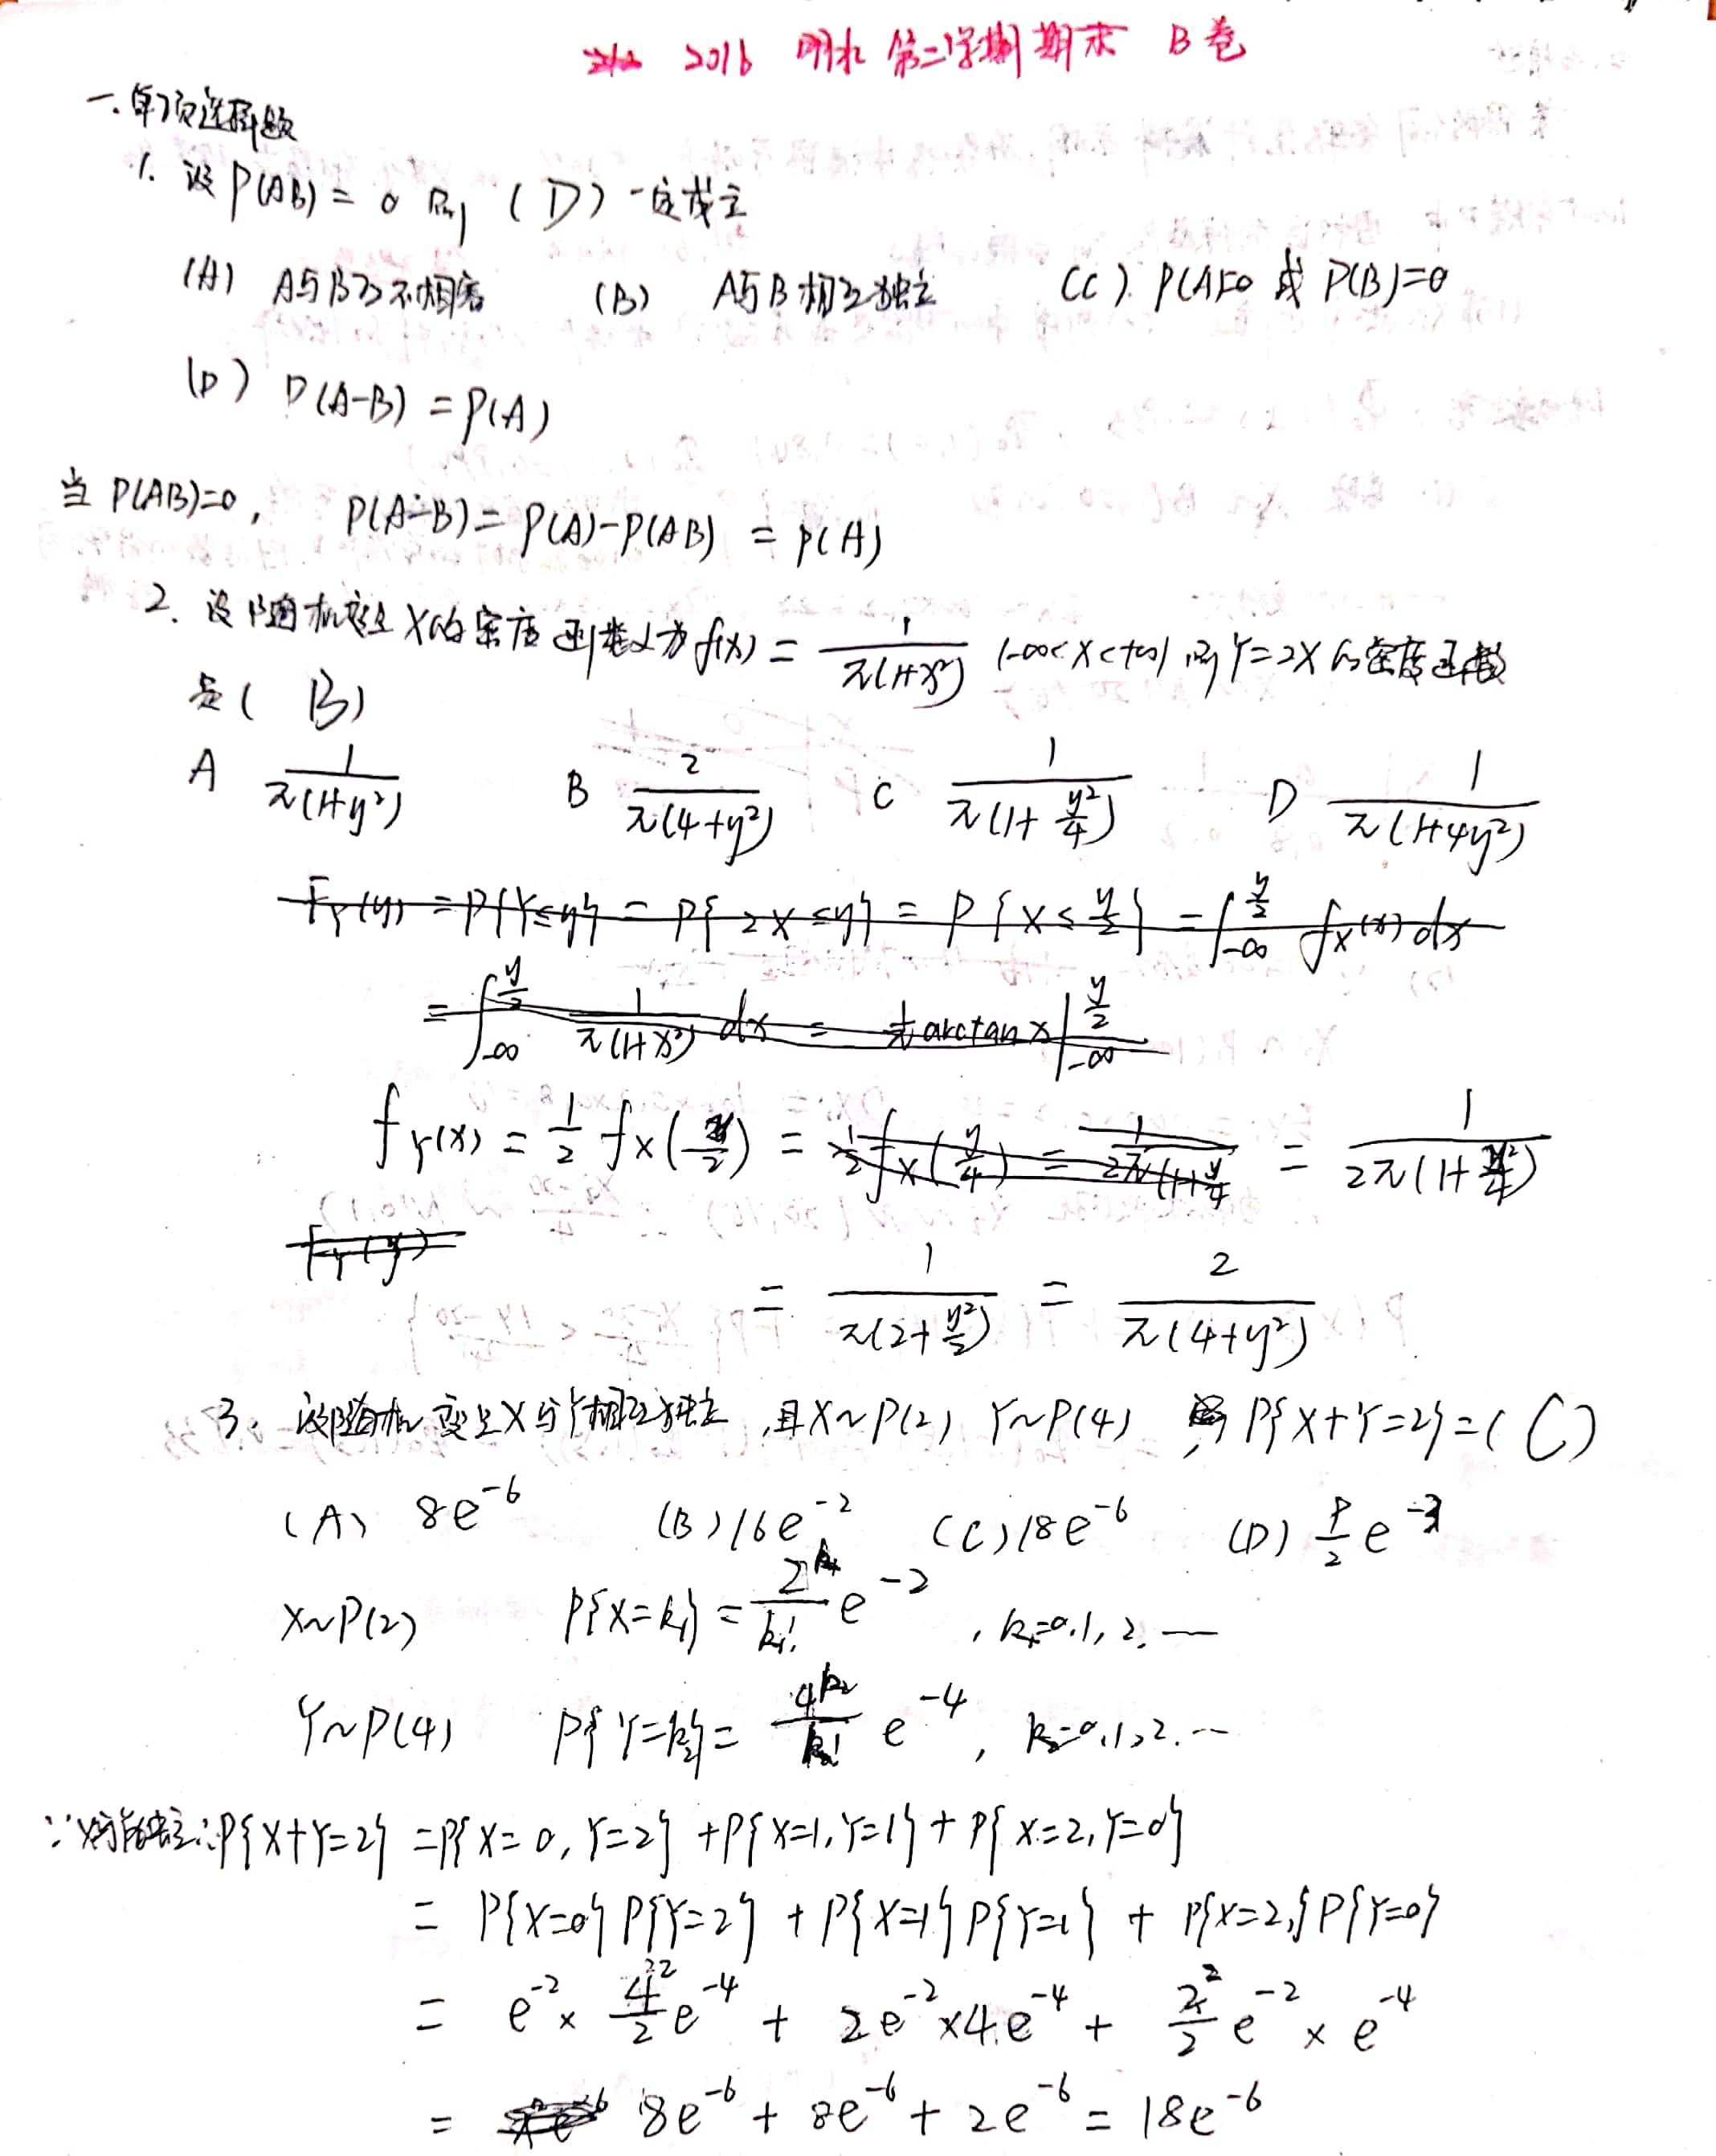 2016 第二学期期末 B卷
一.单项选择题
1. 设P(AB)=0 则 (D) 一定成立
(A) A与B互不相容 (B) A与B相互独立 (C) P(A)=0 或 P(B)=0
(D) P(A-B)=P(A)
当 P(AB)=0, P(A-B)=P(A)-P(AB) =P(A)
2. 设随机变量X的密度函数为f(x)=\frac{1}{π(1+x²)} (-∞<x<+∞) 则Y=2X的密度函数
是( B)
A \frac{1}{π(1+y²)} B \frac{2}{π(4+y²)} C \frac{1}{π(1+\frac{y²}{4})} D \frac{1}{π(1+4y²)}
F_Y(y)=P{Y≤y}=P{2X≤y}=P{X≤\frac{y}{2}}=∫_{-∞}^{\frac{y}{2}} f_X(x)dx
=∫_{-∞}^{\frac{y}{2}} \frac{1}{π(1+x²)}dx=\frac{1}{π}arctanx|_{-∞}^{\frac{y}{2}}
f_Y(x)=\frac{1}{2}f_X(\frac{y}{2})=\frac{1}{2}f_X(\frac{y}{4})=\frac{1}{2π(1+\frac{y}{4}}=\frac{1}{2π(1+\frac{y²}{4})}
F_Y(y)
=\frac{1}{π(2+\frac{y²}{2})}=\frac{2}{π(4+y²)}
3. 设随机变量X与Y相互独立,且X~P(2) Y~P(4) 则 P{X+Y=2}=( C)
(A) 8e^{-6} (B) 16e^{-2} (C) 18e^{-6} (D) \frac{9}{2}e^{-3}
X~P(2) P{X=k₁}=\frac{2^{k₁}}{k₁!}e^{-2}, k₁=0,1,2,…
Y~P(4) P{Y=k₂}=\frac{4^{k₂}}{k₂!}e^{-4}, k₂=0,1,2.…
∵X与Y独立∴P{X+Y=2}=P{X=0,Y=2}+P{X=1,Y=1}+P{X=2,Y=0}
=P{X=0}P{Y=2}+P{X=1}P{Y=1}+P{X=2}P{Y=0}
=e^{-2}×\frac{4²}{2}e^{-4}+2e^{-2}×4e^{-4}+\frac{2²}{2}e^{-2}×e^{-4}
=8e^{-6}+8e^{-6}+2e^{-6}=18e^{-6}